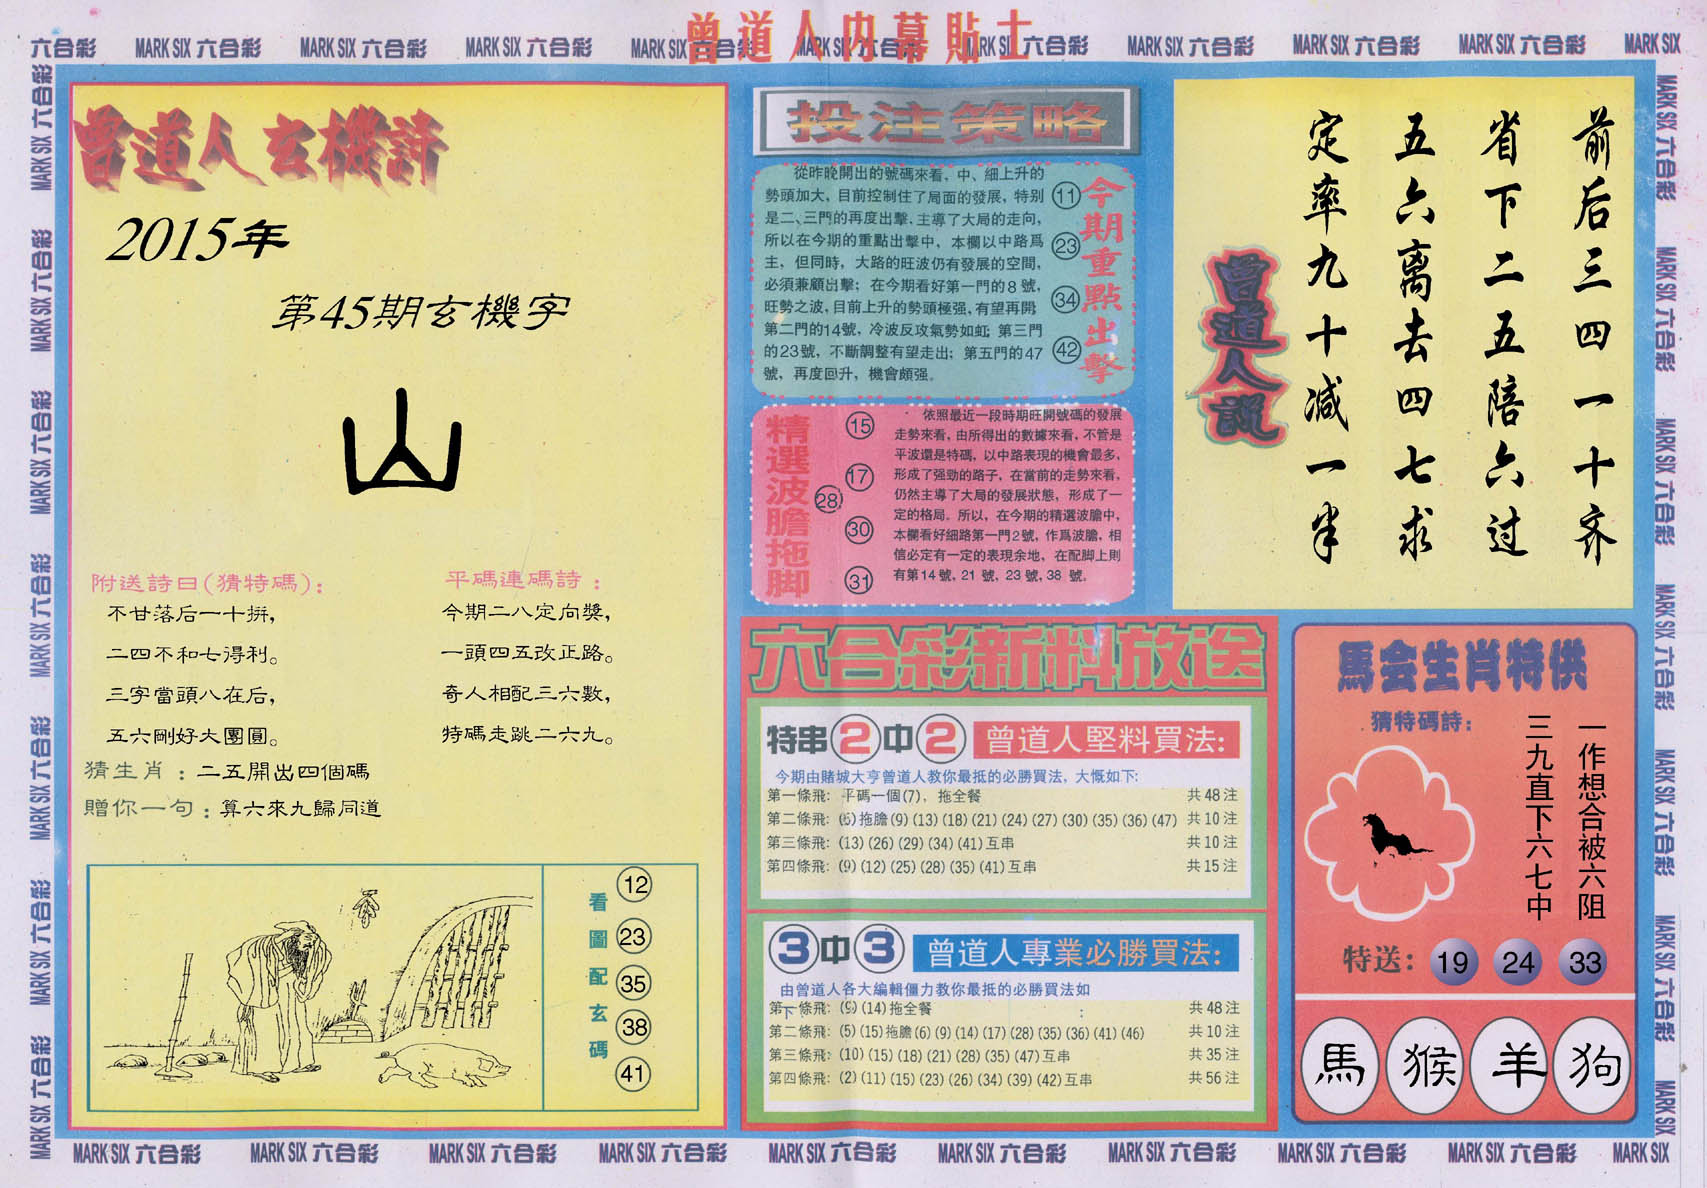 曾道人内幕貼士
六合彩 MARK SIX 六合彩 MARK SIX 六合彩 MARK SIX 六合彩 MARK SIX 六合彩 MARK SIX 六合彩 MARK SIX 六合彩 MARK SIX 六合彩 MARK SIX 六合彩 MARK SIX 六合彩 MARK SIX
曾道人玄機詩
2015年
第45期玄機字
山
附送詩曰(猜特碼):
不甘落后一十拚,
二四不和七得利。
三字當頭八在后,
五六剛好大團圓。
平碼連碼詩:
今期二八定向獎,
一頭四五改正路。
奇人相配三六數,
特碼走跳二六九。
猜生肖:二五開出四個碼
贈你一句:算六來九歸同道
看圖配玄碼
12
23
35
38
41
投注策略
從昨晚開出的號碼來看,中、細上升的
勢頭加大,目前控制住了局面的發展,特别
是二、三門的再度出擊,主導了大局的走向,
所以在今期的重點出擊中,本欄以中路爲
主,但同時,大路的旺波仍有發展的空間,
必須兼顧出擊;在今期看好第一門的8號,
旺勢之波,目前上升的勢頭極强,有望再開;
第二門的14號,冷波反攻氣勢如虹;第三門
的23號,不斷調整有望走出;第五門的47
號,再度回升,機會頗强。
今期重點出擊
11
23
34
42
精選波膽拖脚
15
17
28
30
31
依照最近一段時期旺開號碼的發展
走勢來看,由所得出的數據來看,不管是
平波還是特碼,以中路表現的機會最多,
形成了强勁的路子,在當前的走勢來看,
仍然主導了大局的發展狀態,形成了一
定的格局。所以,在今期的精選波膽中,
本欄看好細路第一門2號,作爲波膽,相
信必定有一定的表現余地,在配脚上則
有第14號,21 號,23號,38 號。
曾道人説
前后三四一十齐
省下二五陪六过
五六离去四七求
定率九十减一半
六合彩新料放送
特串2中2 曾道人堅料買法:
今期由賭城大亨曾道人教你最抵的必勝買法,大慨如下:
第一條飛: 平碼一個(7),拖全餐 共48注
第二條飛: (6)拖膽(9)(13)(18)(21)(24)(27)(30)(35)(36)(47) 共10注
第三條飛: (13)(26)(29)(34)(41)互串 共10注
第四條飛: (9)(12)(25)(28)(35)(41)互串 共15注
3中3 曾道人專業必勝買法:
由曾道人各大編輯僵力教你最抵的必勝買法如下:
第一條飛: (9)(14)拖全餐 共48注
第二條飛: (5)(15)拖膽(6)(9)(14)(17)(28)(35)(36)(41)(46) 共10注
第三條飛: (10)(15)(18)(21)(28)(35)(47)互串 共35注
第四條飛: (2)(11)(15)(23)(26)(34)(39)(42)互串 共56注
馬会生肖特供
猜特碼詩:
一作想合被六阻
三九直下六七中
特送: 19 24 33
馬 猴 羊 狗
MARK SIX 六合彩 MARK SIX 六合彩 MARK SIX 六合彩 MARK SIX 六合彩 MARK SIX 六合彩 MARK SIX 六合彩 MARK SIX 六合彩 MARK SIX 六合彩 MARK SIX 六合彩 MARK SIX